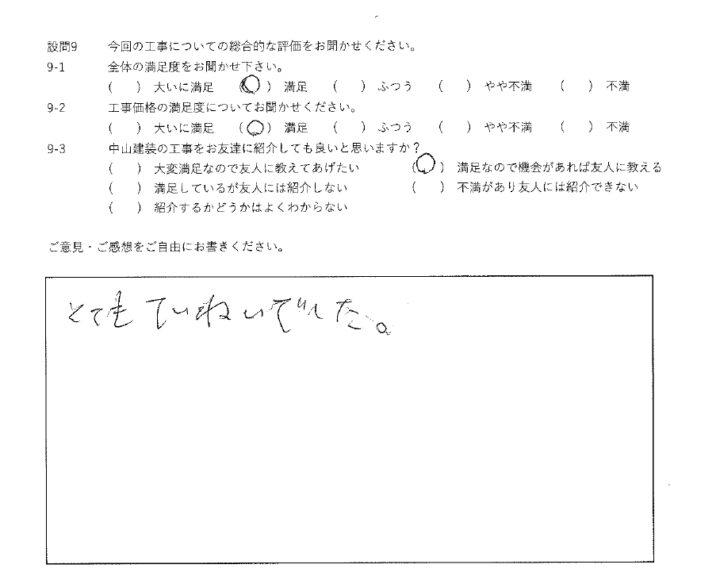 設問9 今回の工事についての総合的な評価をお聞かせください。
9-1 全体の満足度をお聞かせ下さい。
( ) 大いに満足 (○) 満足 ( ) ふつう ( ) やや不満 ( ) 不満
9-2 工事価格の満足度についてお聞かせください。
( ) 大いに満足 (○) 満足 ( ) ふつう ( ) やや不満 ( ) 不満
9-3 中山建装の工事をお友達に紹介しても良いと思いますか?
( ) 大変満足なので友人に教えてあげたい (○) 満足なので機会があれば友人に教える
( ) 満足しているが友人には紹介しない ( ) 不満があり友人には紹介できない
( ) 紹介するかどうかはよくわからない
ご意見・ご感想をご自由にお書きください。
とてもていねいでした。